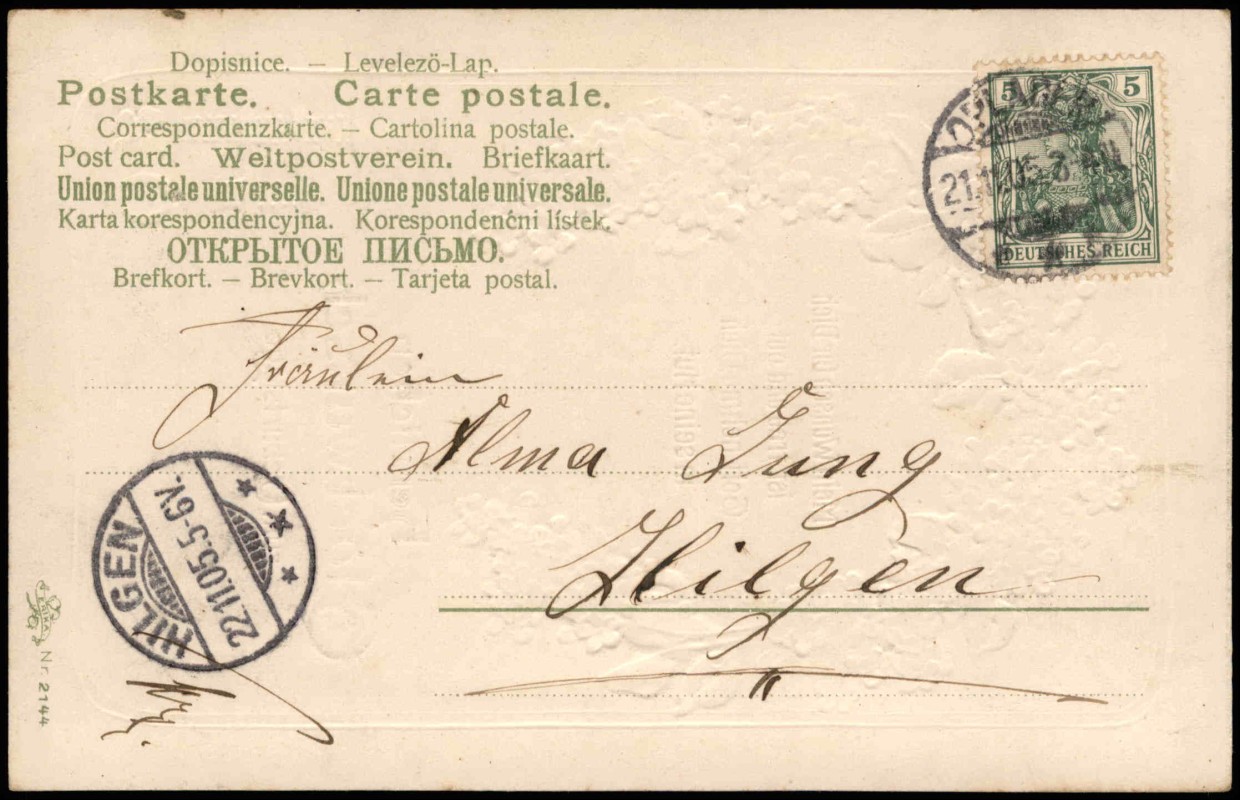 Dopisnice. – Levelező-Lap.
Postkarte. Carte postale.
Correspondenzkarte. – Cartolina postale.
Post card. Weltpostverein. Briefkaart.
Union postale universelle. Unione postale universale.
Karta korespondencyjna. Korespondenčni lístek.
ОТКРЫТОЕ ПИСЬМО.
Brefkort. – Brevkort. – Tarjeta postal.
5 5
DEUTSCHES REICH
Fräulein
Alma Jung
Hilgen
HILGEN
22.11.05.5-6V.
Nr. 2144